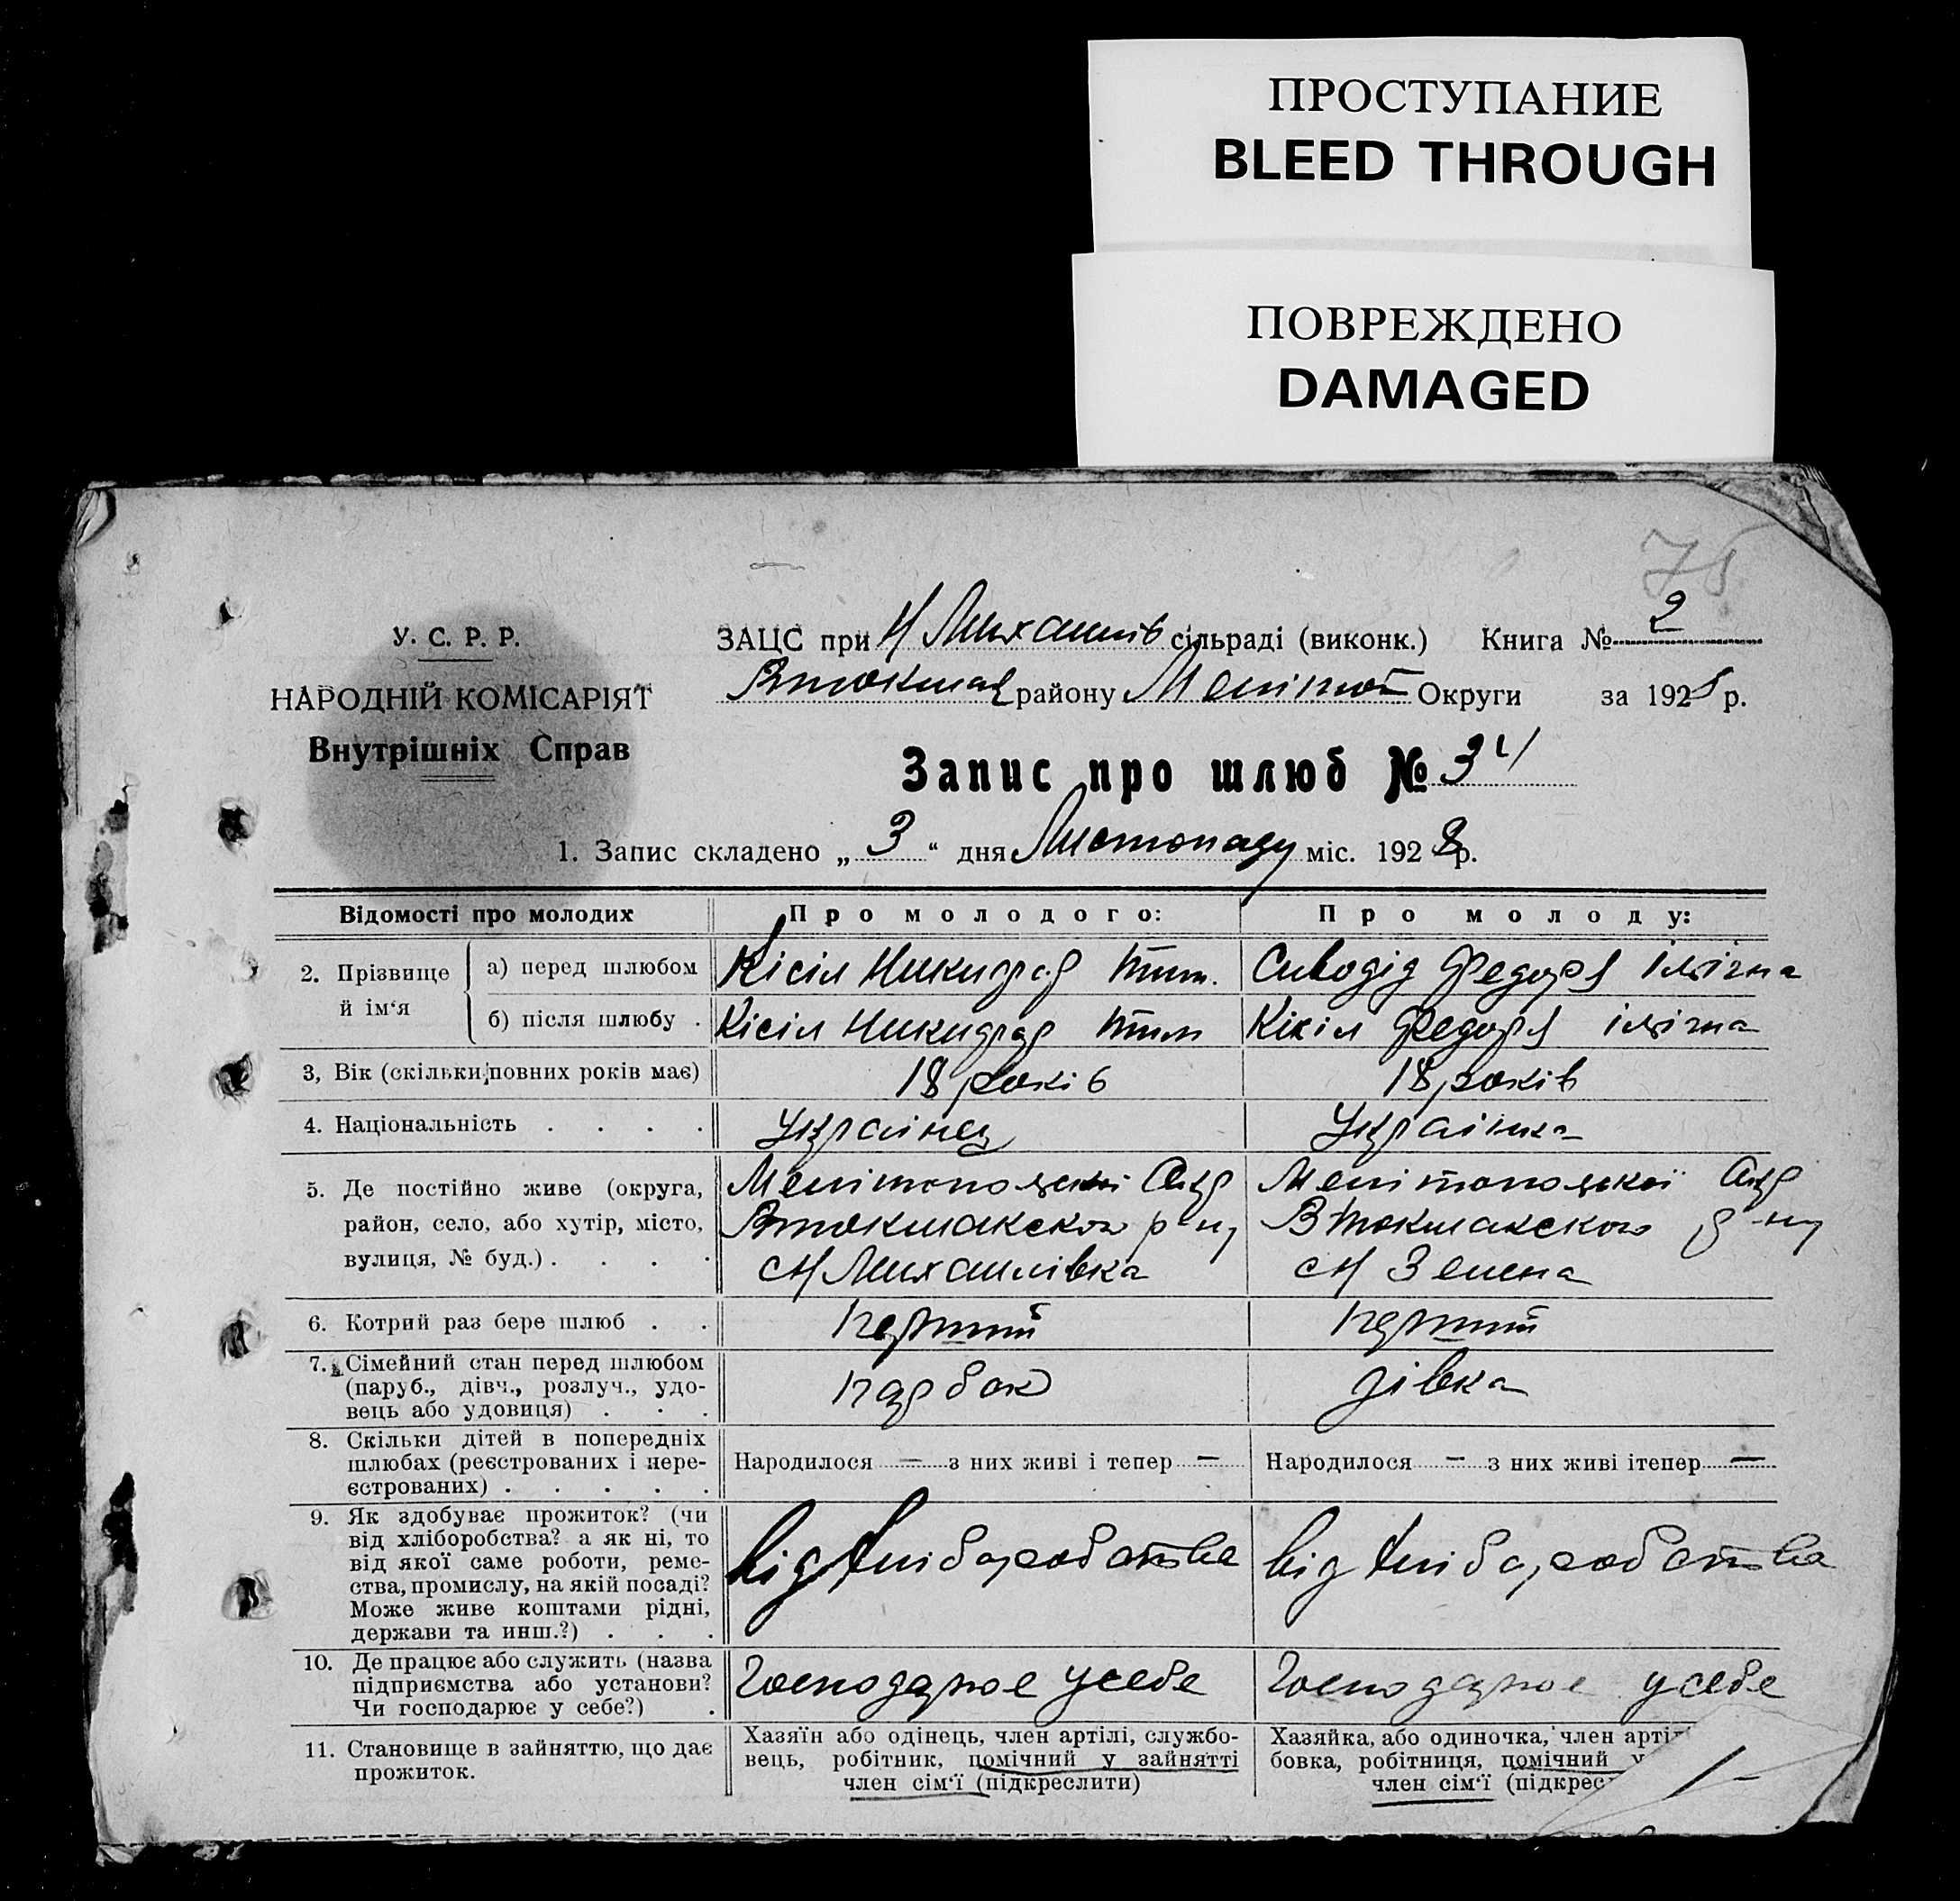 ПРОСТУПАНИЕ
BLEED THROUGH
ПОВРЕЖДЕНО
DAMAGED
75
У. С. Р. Р.
НАРОДНІЙ КОМІСАРІЯТ
Внутрішніх Справ
ЗАЦС при Н Михайлів сільраді (виконк.) Книга № 2
Втокмац району Меліт Округи за 1928 р.
Запис про шлюб № 34
1. Запис складено „ 3 “ дня Листопаду міс. 1928 р.
Відомості про молодих Про молодого: Про молоду:
2. Прізвище й ім‘я
а) перед шлюбом Кісіл Никифор Тим. Сиводід Федора Ілічна
б) після шлюбу . Кісіл Никифор Тим Кікіл Федора ілічна
3, Вік (скільки повних років має) 18 років 18 років
4. Національність . . . . Українец Українка
5. Де постійно живе (округа, район, село, або хутір, місто, вулиця, № буд.) . . . .
Мелітопольскоі Окр Мелітопольскоі Окр
Втокмакского р-ну Втокмакского р-ну
с Н Михайлівка с Н Зелена
6. Котрий раз бере шлюб . . перший перший
7. Сімейний стан перед шлюбом
(паруб., дівч., розлуч., удо-
вець або удовиця) . . .
парбок дівка
8. Скільки дітей в попередніх
шлюбах (реєстрованих і нере-
єстрованих) . . . . .
Народилося — з них живі і тепер — Народилося — з них живі ітепер —
9. Як здобуває прожиток? (чи
від хліборобства? а як ні, то
від якої саме роботи, реме-
ства, промислу, на якій посаді?
Може живе коштами рідні,
держави та инш.?) . . .
від хліборобства від хліборобства
10. Де працює або служить (назва
підприємства або установи?
Чи господарює у себе?) .
Господарює у себе Господарює у себе
11. Становище в зайняттю, що дає
прожиток.
Хазяїн або одінець, член артілі, службо-
вець, робітник, помічний у зайнятті
член сім‘ї (підкреслити)
Хазяйка, або одиночка, член арті
бовка, робітниця, помічний у
член сім‘ї (підкрес